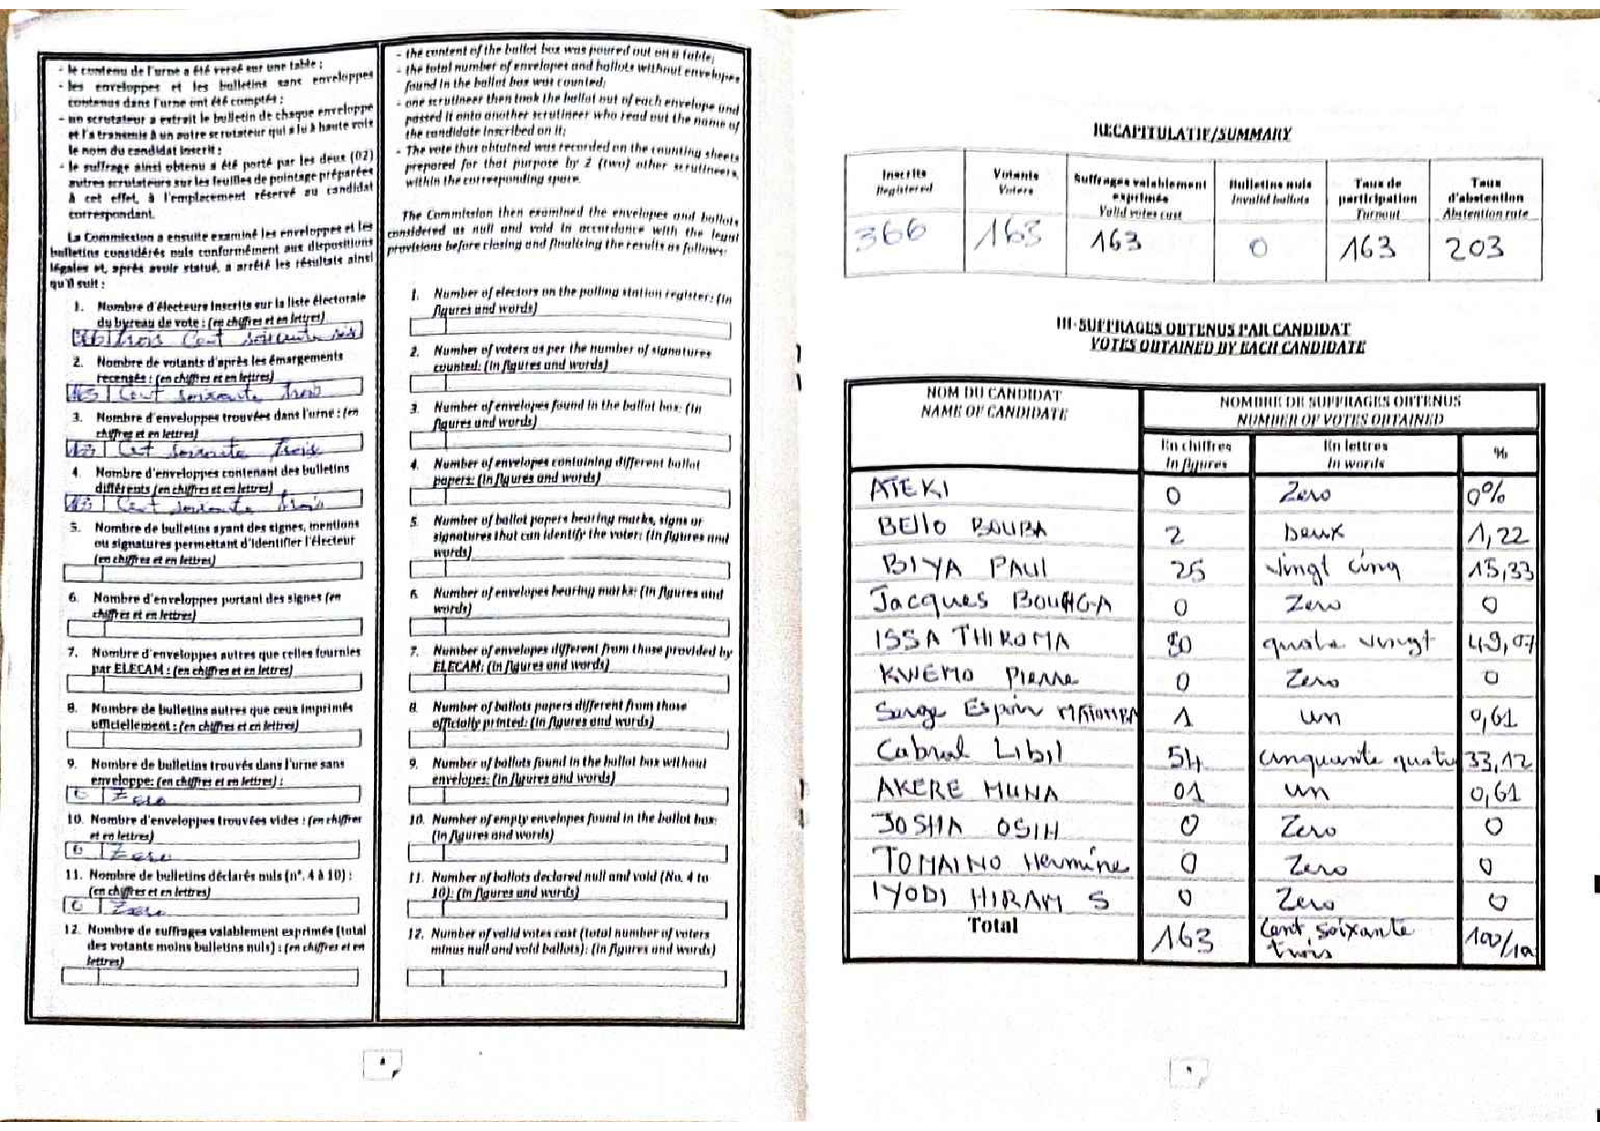 - le contenu de l'urne a été versé sur une table ;
- les enveloppes et les bulletins sans enveloppes
contenus dans l'urne ont été comptés ;
- un scrutateur a extrait le bulletin de chaque enveloppe
et l'a transmis à un autre scrutateur qui a lu à haute voix
le nom du candidat inscrit ;
- le suffrage ainsi obtenu a été porté par les deux (02)
autres scrutateurs sur les feuilles de pointage préparées
à cet effet, à l'emplacement réservé au candidat
correspondant.
La Commission a ensuite examiné les enveloppes et les
bulletins considérés nuls conformément aux dispositions
légales et, après avoir statué, a arrêté les résultats ainsi
qu'il suit :
1. Nombre d'électeurs inscrits sur la liste électorale
du bureau de vote : (en chiffres et en lettres)
366 trois Cent soixante six
2. Nombre de votants d'après les émargements
recensés : (en chiffres et en lettres)
163 Cent soixante trois
3. Nombre d'enveloppes trouvées dans l'urne : (en
chiffres et en lettres)
163 Cet soixante trois
4. Nombre d'enveloppes contenant des bulletins
différents (en chiffres et en lettres)
163 Cent soixante trois
5. Nombre de bulletins ayant des signes, mentions
ou signatures permettant d'identifier l'électeur
(en chiffres et en lettres)
6. Nombre d'enveloppes portant des signes (en
chiffres et en lettres)
7. Nombre d'enveloppes autres que celles fournies
par ELECAM : (en chiffres et en lettres)
8. Nombre de bulletins autres que ceux imprimés
officiellement : (en chiffres et en lettres)
9. Nombre de bulletins trouvés dans l'urne sans
enveloppe: (en chiffres et en lettres) :
0 Zero
10. Nombre d'enveloppes trouvées vides : (en chiffres
et en lettres)
0 Zero
11. Nombre de bulletins déclarés nuls (n°. 4 à 10) :
(en chiffres et en lettres)
0 Zero
12. Nombre de suffrages valablement exprimés (total
des votants moins bulletins nuls) : (en chiffres et en
lettres)
- the content of the ballot box was poured out on a table;
- the total number of envelopes and ballots without envelopes
found in the ballot box was counted;
- one scrutineer then took the ballot out of each envelope and
passed it onto another scrutineer who read out the name of
the candidate inscribed on it;
- The vote thus obtained was recorded on the counting sheets
prepared for that purpose by 2 (two) other scrutineers,
within the corresponding space.
The Commission then examined the envelopes and ballots
considered as null and void in accordance with the legal
provisions before closing and finalising the results as follows:
1. Number of electors on the polling station register: (in
figures and words)
2. Number of voters as per the number of signatures
counted: (in figures and words)
3. Number of envelopes found in the ballot box: (in
figures and words)
4. Number of envelopes containing different ballot
papers: (in figures and words)
5. Number of ballot papers bearing marks, signs or
signatures that can identify the voter: (in figures and
words)
6. Number of envelopes bearing marks: (in figures and
words)
7. Number of envelopes different from those provided by
ELECAM: (in figures and words)
8. Number of ballots papers different from those
officially printed: (in figures and words)
9. Number of ballots found in the ballot box without
envelopes: (in figures and words)
10. Number of empty envelopes found in the ballot box:
(in figures and words)
11. Number of ballots declared null and void (No. 4 to
10): (in figures and words)
12. Number of valid votes cast (total number of voters
minus null and void ballots): (in figures and words)
4
RECAPITULATIF/SUMMARY
Inscrits Votants Suffrages valablement exprimés Bulletins nuls Taux de participation Taux d'abstention
Registered Voters Valid votes cast Invalid ballots Turnout Abstention rate
366 163 163 0 163 203
III-SUFFRAGES OBTENUS PAR CANDIDAT
VOTES OBTAINED BY EACH CANDIDATE
NOM DU CANDIDAT NOMBRE DE SUFFRAGES OBTENUS
NAME OF CANDIDATE NUMBER OF VOTES OBTAINED
En chiffres En lettres %
In figures In words
ATEKI 0 Zero 0%
BEllo BOUBA 2 Deux 1,22
BIYA PAUl 25 vingt cinq 15,33
Jacques BOUHGA 0 Zero 0
ISSA THIROMA 80 quatre vingt 49,07
KWEMO Pierre 0 Zero 0
Serge Espoir MATOMBA 1 un 0,61
Cabral Libil 54 cinquante quatre 33,12
AKERE MUNA 01 un 0,61
JOSHA OSIH 0 Zero 0
TOMAINO Hermine 0 Zero 0
IYODI HIRAM S 0 Zero 0
Total 163 Cent soixante trois 100/100